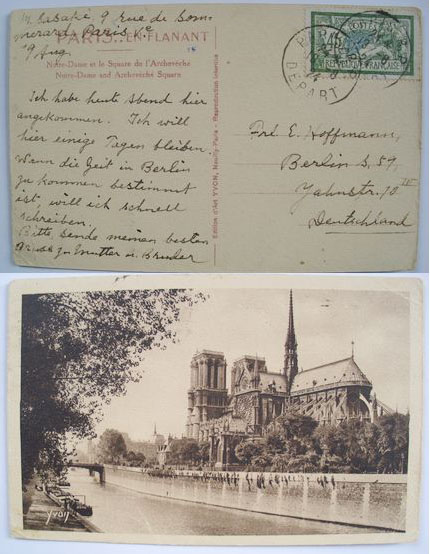 9 rue de Som
merard Paris Ve
19 Aug.
PARIS... EN FLANANT
Notre-Dame et le Square de l'Archevêché
Notre-Dame and Archevêché Square
Ich habe heute Abend hier
angekommen. Ich will
hier einige Tagen bleiben.
Wann die Zeit in Berlin
zu kommen bestimmt
ist, will ich schnell
schreiben.
Bitte sende meinen besten
Grüsse zu Mutter u. Bruder
Edition d'Art YVON, Neuilly-Paris - Reproduction interdite
Frl E. Hoffmann,
Berlin S 59,
Jahnstr. 10 IV
Deutschland
DEPART
45
yvon